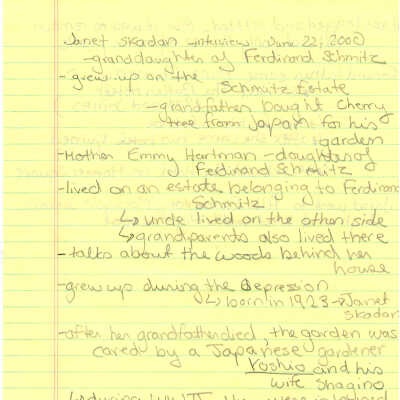 Janet Skadan interview June 22, 2000
-granddaughter of Ferdinand Schmitz
-grew up on the Schmitz Estate
-grandfather bought Cherry
tree from Japan for his
garden
-Mother Emmy Hartman - daughter of
Ferdinand Schmitz
-lived on an estate belonging to Ferdinand
Schmitz
↳ uncle lived on the other side
↳ grandparents also lived there
-talks about the woods behind her
house
-grew up during the Depression
↳ born in 1923 → Janet
Skadan
-after her grandfather died, the garden was
cared by a Japanese gardener
Yoshio and his
wife Shagino
↳ during WWII they were interned